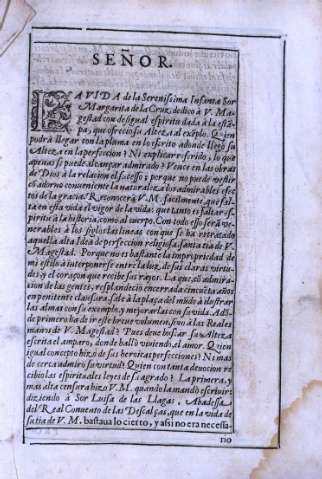 SEÑOR.
LA VIDA de la Serenissima Infanta Sor
Margarita de la Cruz, dedico a V. Ma-
gestad con desigual espiritu dada à la està-
pa, que ofrecio su Alteza al exẽplo. Quien
podrà llegar con la pluma en lo escrito adonde llegò su
Alteza en la perfeccion? Ni explicarreferido, lo que
apenas se puede alcançar admirado? Vence en las obras
de Dios à la relacion el sucesso; porque no puede vestir
de adorno conveniente la naturaleza los admirables efec-
tos de la gracia. Reconocerà V. M. facilmente, que fal-
ta en esta vida el vigor de la vida: que tanto es faltar es-
piritu à la historia, como al cuerpo. Con todo esso serà ve-
nerables à los siglos las lineas con que se ha retratado
aquella alta Idea de perfeccion religiosa, santa tia de V.
Magestad. Porque no es bastante la impropriedad de
mi estilo à interponerse entre la luz, de sus claras virtu-
des, y el coraçon que recibe sus rayos. La que, cõ admira-
cion de las gentes, resplandeciò encerrada cincuẽta años
en penitente clausura, sale à la plaça del mũdo à ilustrar
las almas con su exemplo, y mejorarlas con su vida. Adõ-
de primero ha de ir este breve volumen, sino à las Reales
manos de V. Magestad? Pues deve buscar su Alteza
escrita el amparo, donde hallò viviendo, el amor. Quien
igual concepto hizo de sus heroicas perfecciones? Ni mas
de cerca admirò su virtud? Quien con tanta devocion re-
cibio las espirituales leyes de su agrado? La primera, y
mas alta censura hizo V.M. quando la mandò escrivir:
diziendo à Sor Luisa de las Llagas, Abadessa
del Real Convento de las Descalças, que en la vida de
su tia de V. M. bastaua lo cierto, y assi no era necessa-
rio